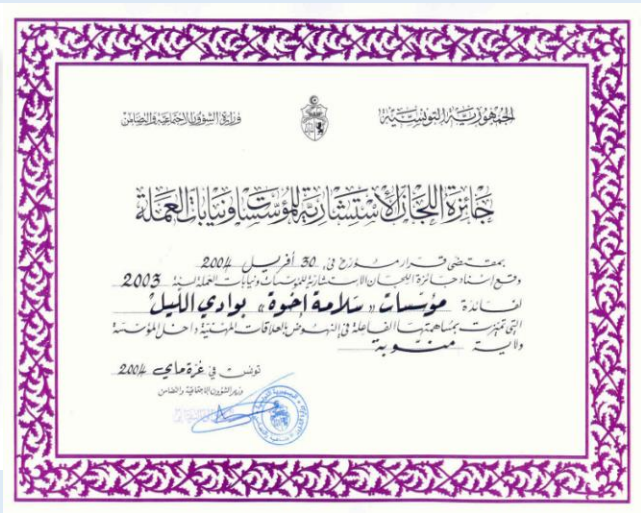 الجمهورية التونسية
وزارة الشؤون الاجتماعية والتضامن
جائزة اللجان الاستشارية للمؤسسات ونيابات العملة
بمقتضى قرار مؤرخ في 30 أفريل 2004
وقع إسناد جائزة اللجان الاستشارية للمؤسسات ونيابات العملة لسنة 2003
لفائدة مؤسسات "سلامة إخوة" بوادي الليل
التي تميزت بمساهمتها الفاعلة في النهوض بالعلاقات المهنية داخل المؤسسة
ولاية منوبة
تونس في غرة ماي 2004
وزير الشؤون الاجتماعية والتضامن